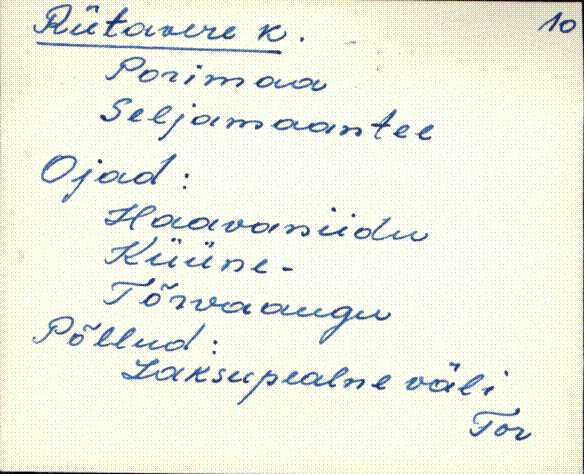 Rütavere k. 10
Porimaa
Seljamaantee
Ojad:
Haavaniidu
Küüne-
Tõrvaaugu
Põllud:
Laksupealne väli
Tor